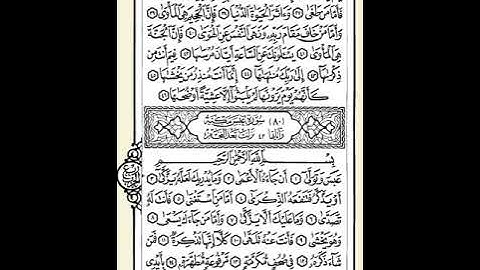 فَأَمَّا مَن طَغَىٰ ٣٧ وَءَاثَرَ ٱلْحَيَوٰةَ ٱلدُّنْيَا ٣٨ فَإِنَّ ٱلْجَحِيمَ هِىَ ٱلْمَأْوَىٰ ٣٩
وَأَمَّا مَنْ خَافَ مَقَامَ رَبِّهِۦ وَنَهَى ٱلنَّفْسَ عَنِ ٱلْهَوَىٰ ٤٠ فَإِنَّ ٱلْجَنَّةَ
هِىَ ٱلْمَأْوَىٰ ٤١ يَسْـَٔلُونَكَ عَنِ ٱلسَّاعَةِ أَيَّانَ مُرْسَىٰهَا ٤٢ فِيمَ أَنتَ مِن
ذِكْرَىٰهَآ ٤٣ إِلَىٰ رَبِّكَ مُنتَهَىٰهَآ ٤٤ إِنَّمَآ أَنتَ مُنذِرُ مَن يَخْشَىٰهَا ٤٥
كَأَنَّهُمْ يَوْمَ يَرَوْنَهَا لَمْ يَلْبَثُوٓا۟ إِلَّا عَشِيَّةً أَوْ ضُحَىٰهَا ٤٦
(٨٠) سُورَةُ عَبَسَ مَكِّيَّة
وَآيَاتُهَا ٤٢ نَزَلَتْ بَعْدَ النَّجْمِ
بِسْمِ ٱللَّهِ ٱلرَّحْمَٰنِ ٱلرَّحِيمِ
عَبَسَ وَتَوَلَّىٰٓ ١ أَن جَآءَهُ ٱلْأَعْمَىٰ ٢ وَمَا يُدْرِيكَ لَعَلَّهُۥ يَزَّكَّىٰٓ ٣
أَوْ يَذَّكَّرُ فَتَنفَعَهُ ٱلذِّكْرَىٰٓ ٤ أَمَّا مَنِ ٱسْتَغْنَىٰ ٥ فَأَنتَ لَهُۥ
تَصَدَّىٰ ٦ وَمَا عَلَيْكَ أَلَّا يَزَّكَّىٰ ٧ وَأَمَّا مَن جَآءَكَ يَسْعَىٰ ٨
وَهُوَ يَخْشَىٰ ٩ فَأَنتَ عَنْهُ تَلَهَّىٰ ١٠ كَلَّآ إِنَّهَا تَذْكِرَةٌ ١١ فَمَن
شَآءَ ذَكَرَهُۥ ١٢ فِى صُحُفٍ مُّكَرَّمَةٍ ١٣ مَّرْفُوعَةٍ مُّطَهَّرَةٍۭ ١٤ بِأَيْدِى